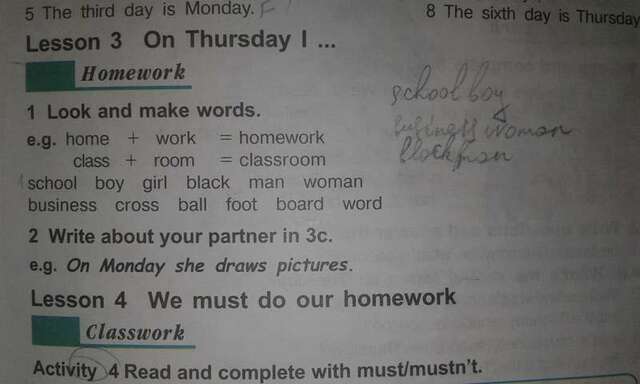 5 The third day is Monday. F
8 The sixth day is Thursday
Lesson 3 On Thursday I ...
Homework
1 Look and make words.
e.g. home + work = homework
class + room = classroom
school boy girl black man woman
business cross ball foot board word
school boy
business woman
blackman
2 Write about your partner in 3c.
e.g. On Monday she draws pictures.
Lesson 4 We must do our homework
Classwork
Activity 4 Read and complete with must/mustn't.